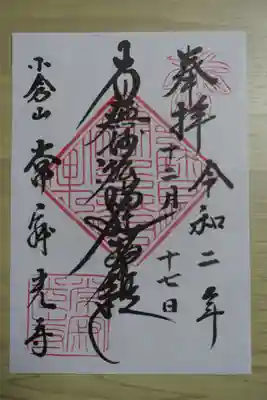 奉拝
令和二年
十二月十七日
南無妙法蓮華経
小倉山
常寂光寺